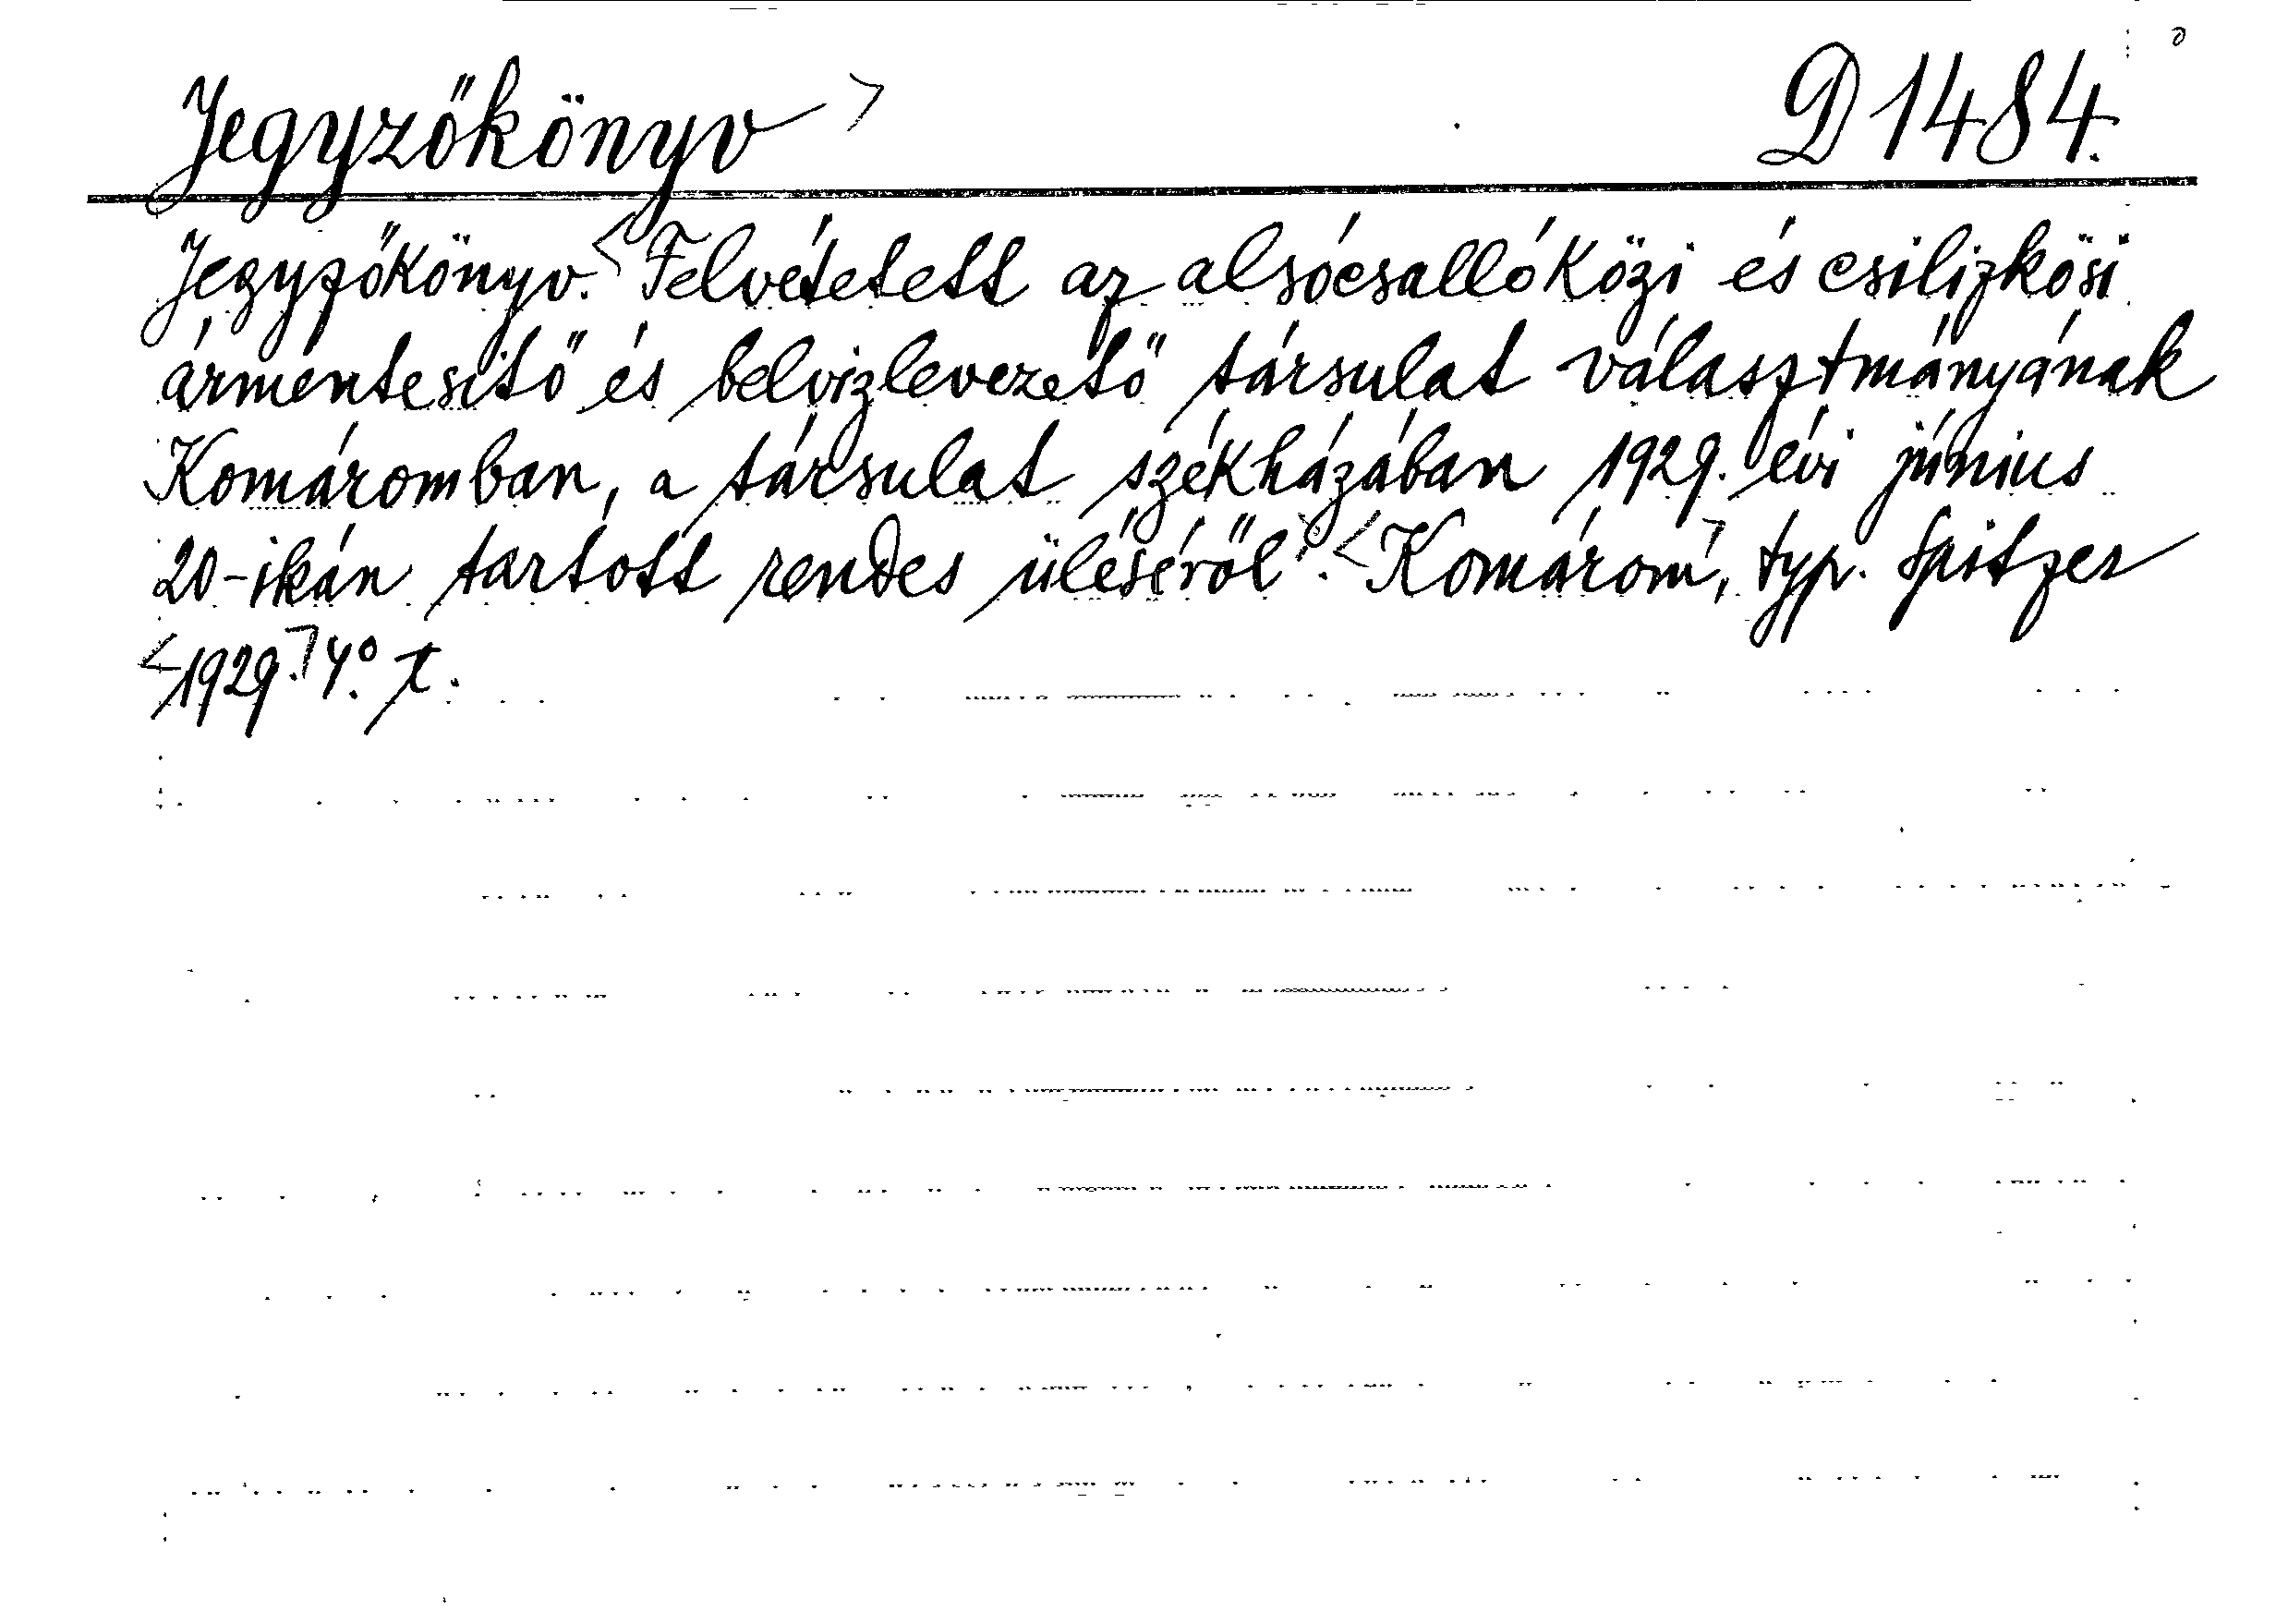 Jegyzőkönyv > D 1484.
Jegyzőkönyv. < Felvétetett az alsócsallóközi és csilizközi
ármentesitő és belvizlevezető társulat választmányának
Komáromban, a társulat székházában 1929. évi június
20-ikán tartott rendes üléséről >. < Komárom >, typ. Spitzer
< 1929. > 4°.